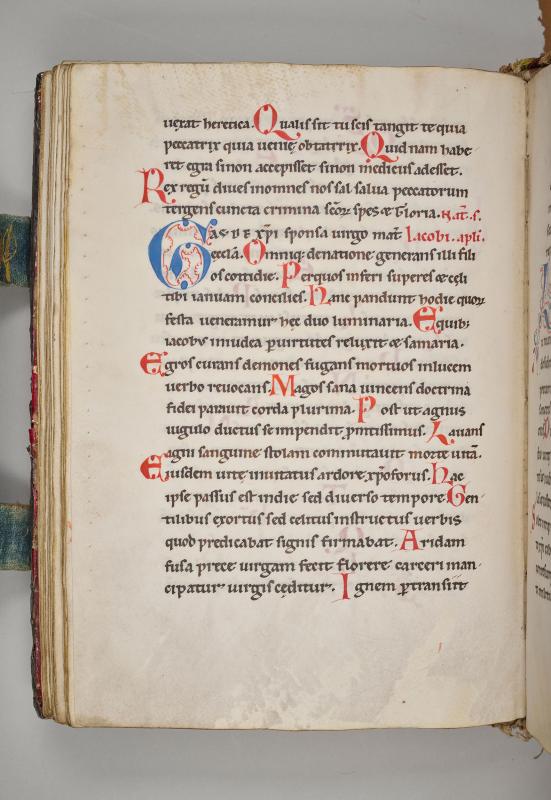 uerat heretica. Qualis sit tu scis tangit te quia
peccatrix quia uenię obtatrix. Quidnam habe
ret egra si non accepisset si non medicus adesset.
Rex regū diues in omnes nos sal salua peccatorum
tergens cuncta crimina scōꝝ spes & gloria. Nat. S.
Gaude xp̄i sponsa uirgo mat̄ Iacobi. apli.
ęcclā. Omniq; denatione generans illi fili
os cottidie. Per quos inferi superẽ & cęli
tibi ianuam concilies. Hanc pandunt hodie quoꝝ
festa ueneramur hęc duo luminaria. E quib;
iacobus in iudea ꝑ uirtutes reluxit & samaria.
Egros curans demones fugans mortuos in lucem
uerbo reuocans. Magos sana uincens doctrina
fidei parauit corda plurima. Post ut agnus
iugulo ductus se impendit ꝓmtissimus. Lauans
agni sanguine stolam commutauit morte uitā.
Eiusdem uitę imitatus ardore xp̄oforus. Hac
ipse passus est in die sed diuerso tempore. Gen
tilibus exortus sed celitus instructus uerbis
quod predicabat signis firmabat. Aridam
fusa prece uirgam fecit florere carceri man
cipatur uirgis cęditur. Ignem ꝑtransiit